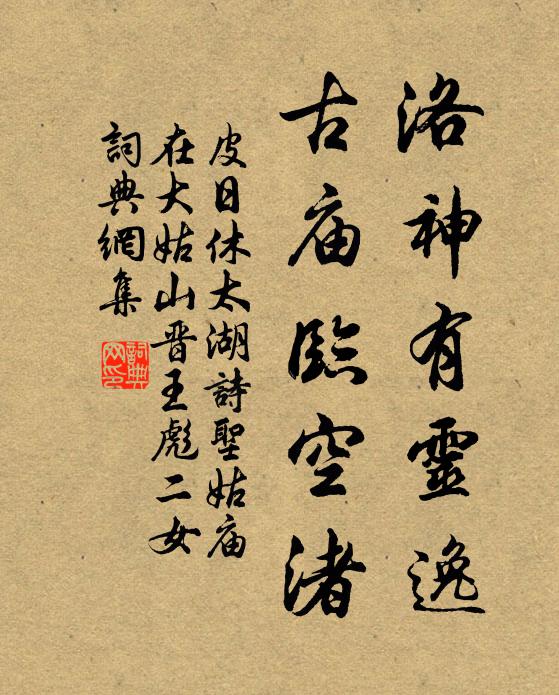 洛神有靈逸
古庙臨空渚
皮日休太湖詩聖姑庙
在大姑山晋王彪二女
詞典網集
詞典
网印